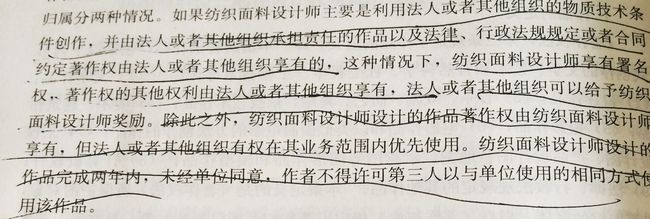 归属分两种情况。如果纺织面料设计师主要是利用法人或者其他组织的物质技术条
件创作，并由法人或者其他组织承担责任的作品以及法律、行政法规规定或者合同
约定著作权由法人或者其他组织享有的，这种情况下，纺织面料设计师享有署名
权，著作权的其他权利由法人或者其他组织享有，法人或者其他组织可以给予纺织
面料设计师奖励。除此之外，纺织面料设计师设计的作品著作权由纺织面料设计师
享有，但法人或者其他组织有权在其业务范围内优先使用。纺织面料设计师设计的
作品完成两年内，未经单位同意，作者不得许可第三人以与单位使用的相同方式使
用该作品。